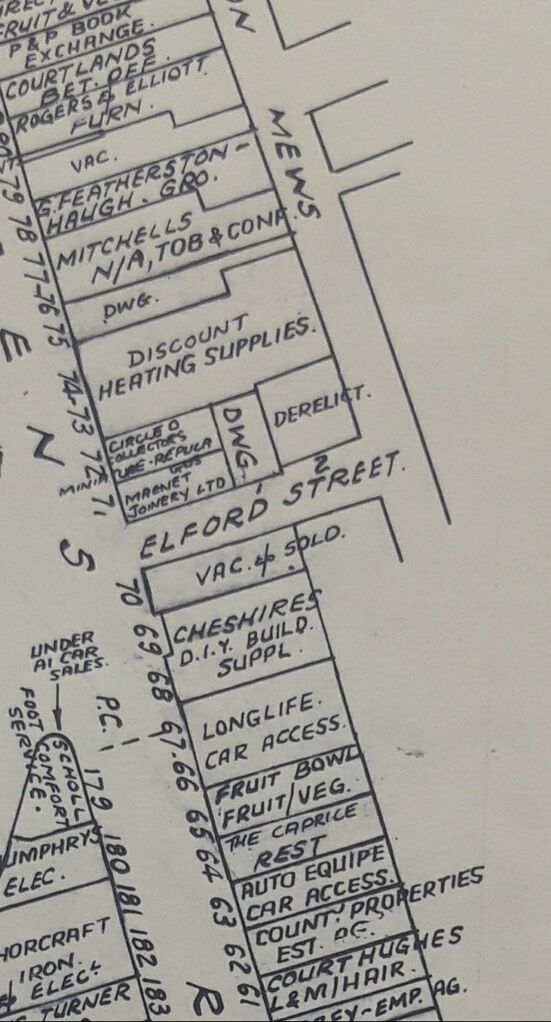 FRUIT & VE
P&P BOOK
EXCHANGE.
COURTLANDS
BET. OFF.
ROGERS & ELLIOTT.
FURN.
VAC.
79
G. FEATHERSTON-
HAUGH. GRO.
78
MITCHELLS
N/A, TOB & CONF.
77-76
DWG.
75
DISCOUNT
HEATING SUPPLIES.
74-73
CIRCLE D
COLLECTORS
MINIATURE-REPLICA
GUS
72
MAGNET
JOINERY LTD
71
DWG.
1
DERELICT.
2
ON MEWS
ELFORD STREET.
E N S R
VAC. & SOLD.
70
CHESHIRES
D.I.Y. BUILD.
SUPPL.
69
68
LONGLIFE.
CAR ACCESS.
67-66
FRUIT BOWL
FRUIT/VEG.
65
THE CAPRICE
REST
64
AUTO EQUIPE
CAR ACCESS.
63
COUNTY PROPERTIES
EST. AG.
62
COURT HUGHES
L&M/HAIR.
61
EY-EMP. AG.
P.C.
UNDER
A1 CAR
SALES.
SCHOLL
COMFORT
FOOT
SERVICE.
179
UMPHRYS
ELEC.
180
181
HORCRAFT
IRON.
& ELECL
182
TURNER
183